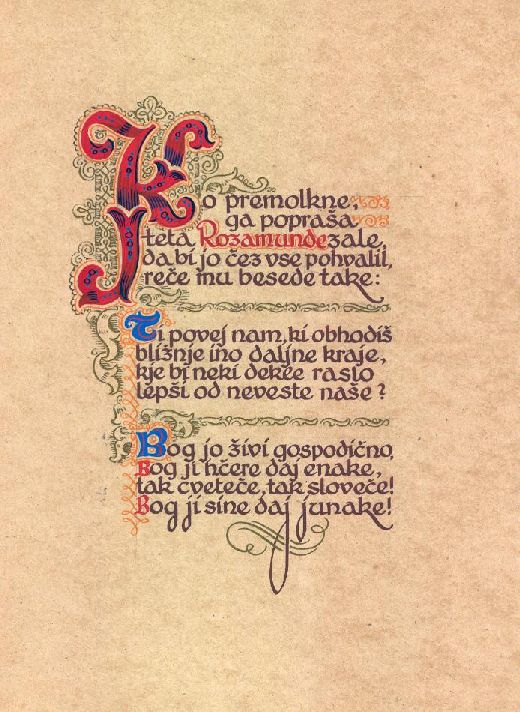 Ko premolkne,
ga popraša
teta Rozamunde zale,
da bi jo čez vse pohvalil,
reče mu besede take:
Ti povej nam, ki obhodiš
bližnje ino daljne kraje,
kje bi neki dekle raslo
lepši od neveste naše?
Bog jo živi gospodično,
Bog ji hčere daj enake,
tak cveteče, tak sloveče!
Bog ji sine daj junake!